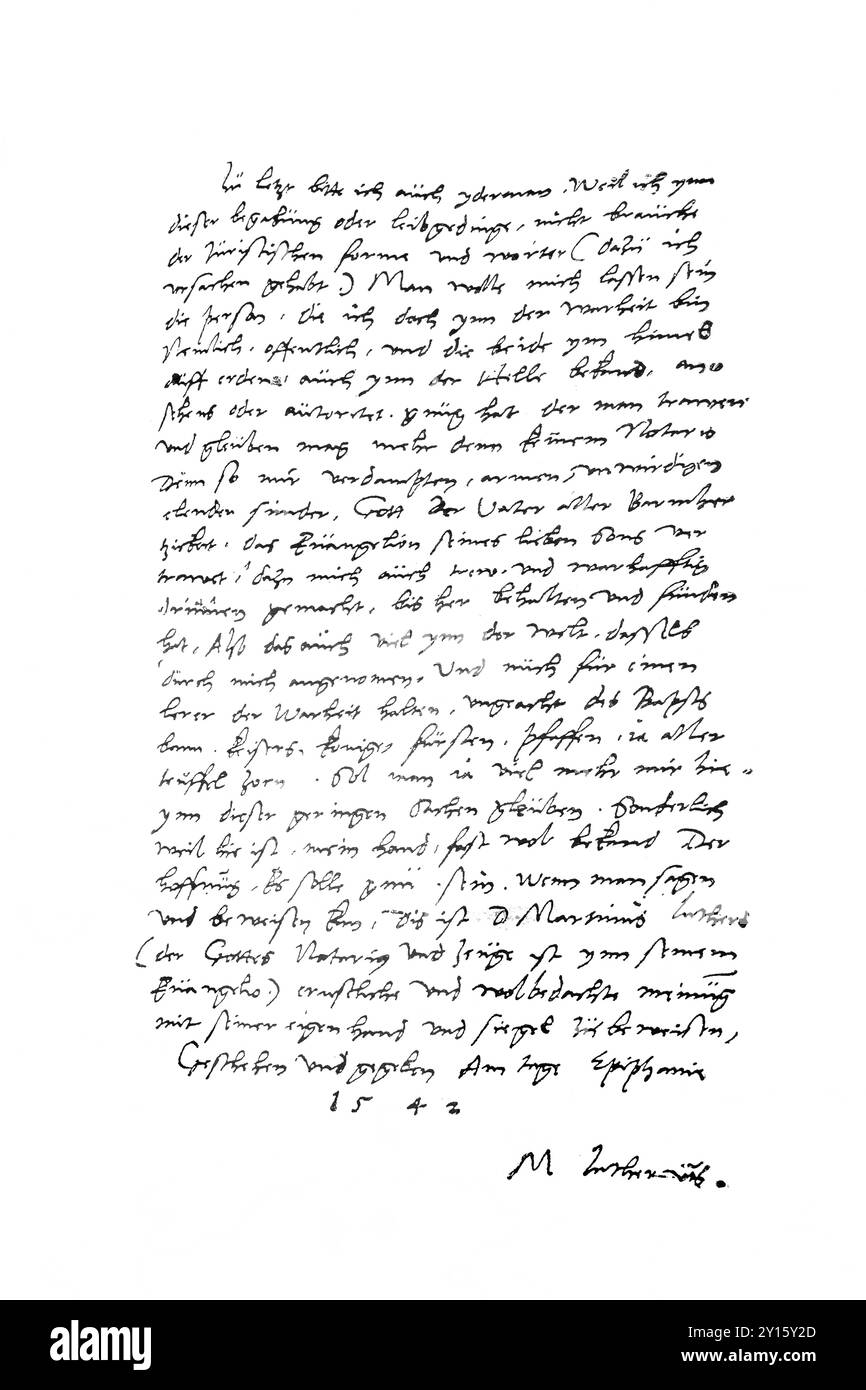 Zu letzt bitte ich auch yderman, Weil ich ynn
dieser begabung oder leibgedinge, nicht brauche
der Juristischen forme und worter (dazu ich
ursachen gehabt) Man wolle mich lassen sein
die person, die ich doch ynn der warheit bin
Nemlich, offentlich, und die beide ym himel
auff erden, auch ynn der Helle bekand, an-
sehens oder autoritet gnug hat, der man trawen
und gleuben mag mehr denn keinem Notario
Denn so mir verdampten, armen, unwirdigen
elenden sunder, Gott der Vater aller Barmher
tzickeit, das Euangelion seines lieben Sons ver
trawet, dazu mich auch trew und warhafftig
drinnen gemacht, bis her behalten und funden
hat, Also das auch viel ynn der welt, dassels
durch mich angenomen, Und mich fur einen
lerer der Warheit halten, ungeacht des Bapsts
bann, keisers, konige, fursten, pfaffen, ia aller
teuffel zorn, Sol man ia viel mehr mir hie
ynn dieser geringen sachen gleuben, Sonderlich
weil hie ist, mein hand, fast wol bekand Der
hoffnung, Es solle gnu sein, Wenn man sagen
und beweisen kan, dis ist D Martinus Luthers
(der Gottes Notarius und zeuge ist ynn seinem
Euangelio) ernstliche und wolbedachte meinung
mit seiner eigen hand und siegel zu beweisen,
Geschehen und gegeben Am tage Epiphanie
1542
M Luther
alamy
Image ID: 2Y15Y2D
www.alamy.com